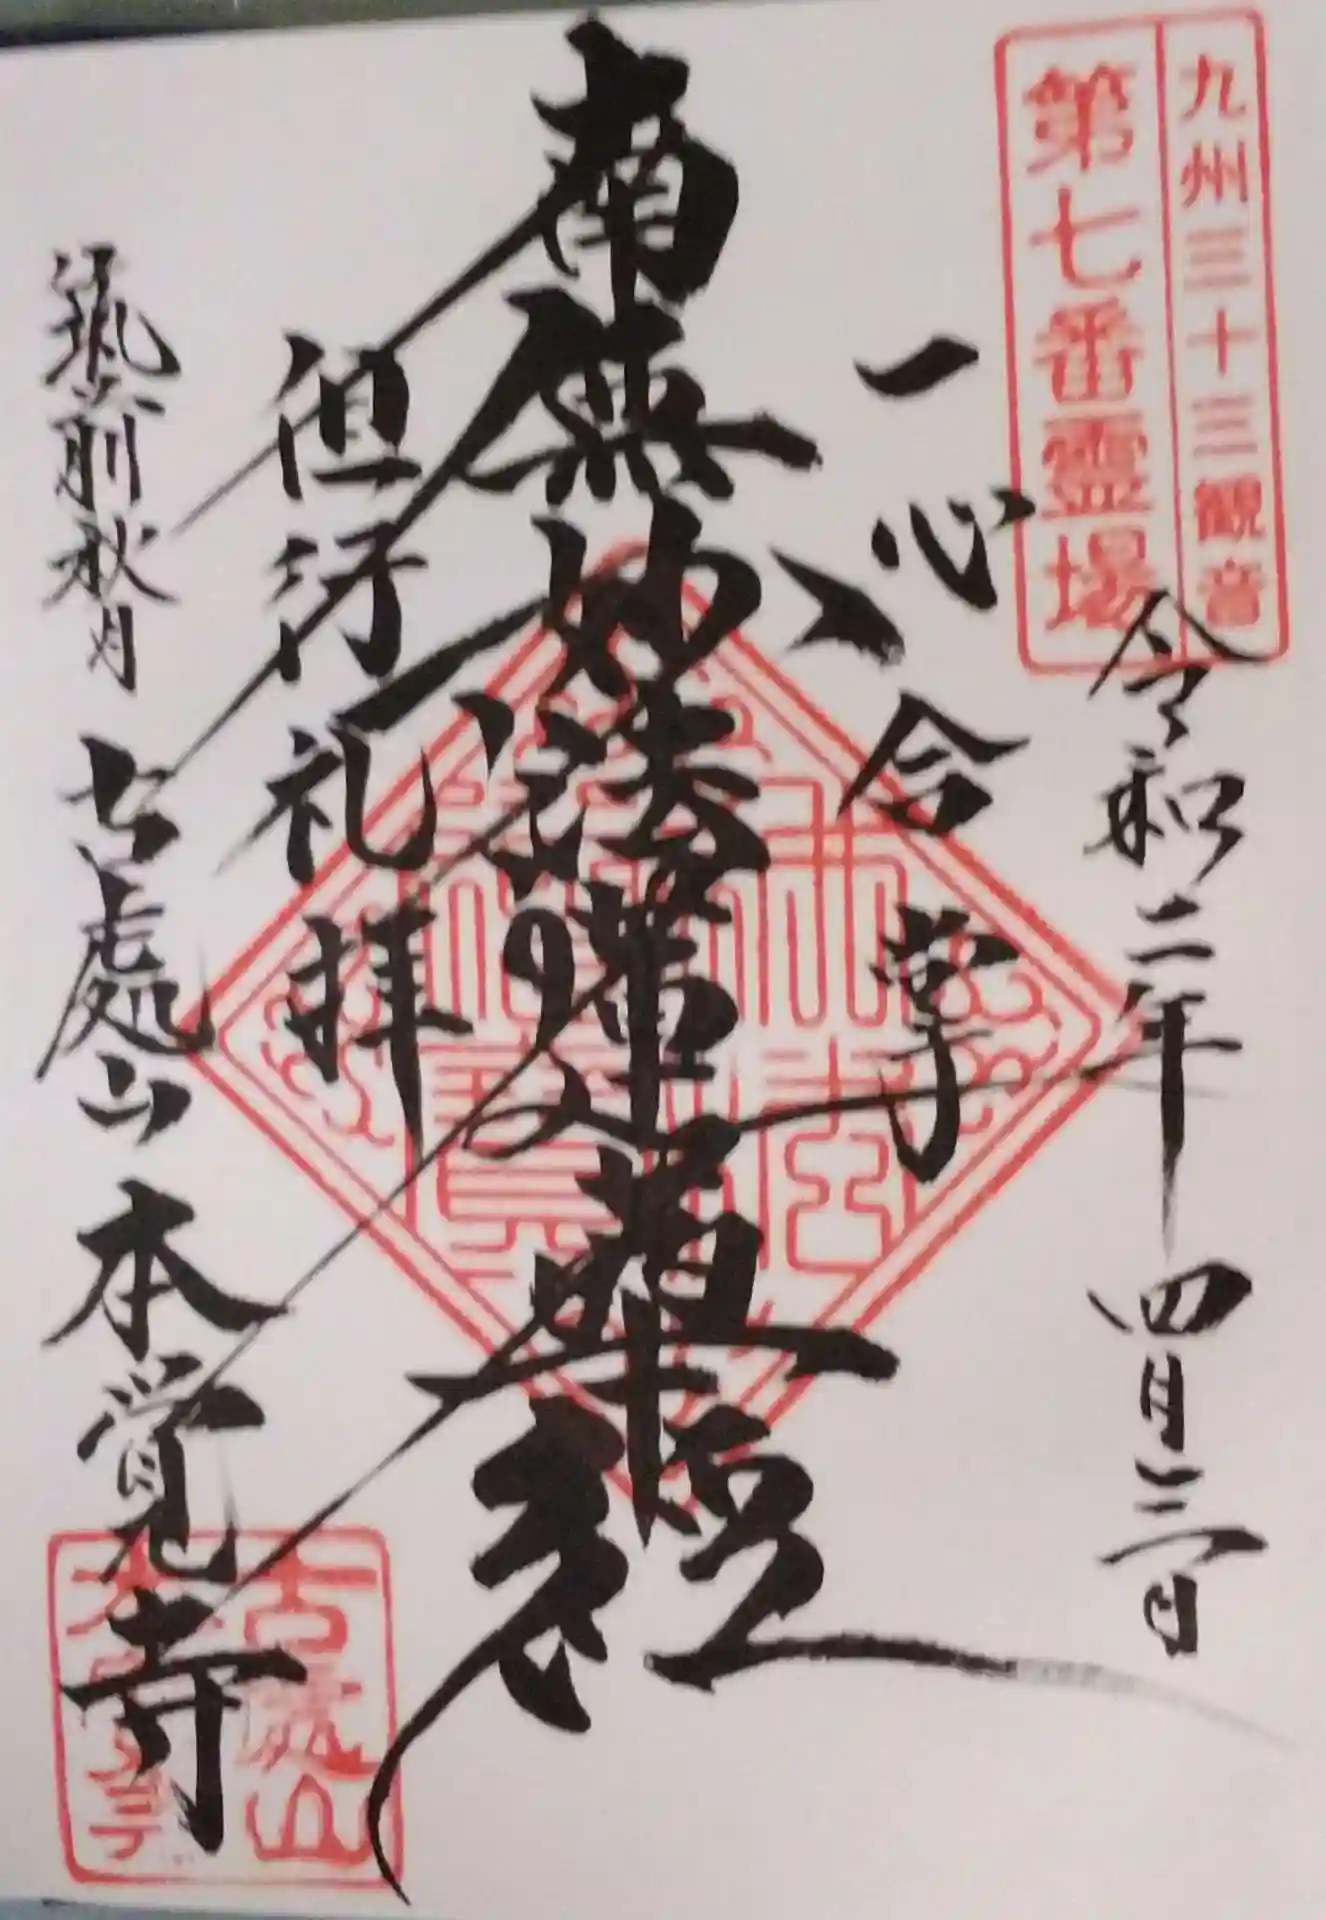 九州三十三観音
第七番霊場
令和二年四月三日
一心合掌
南無妙法蓮華経
但行礼拝
筑前秋月 古處山 本覚寺
古處山